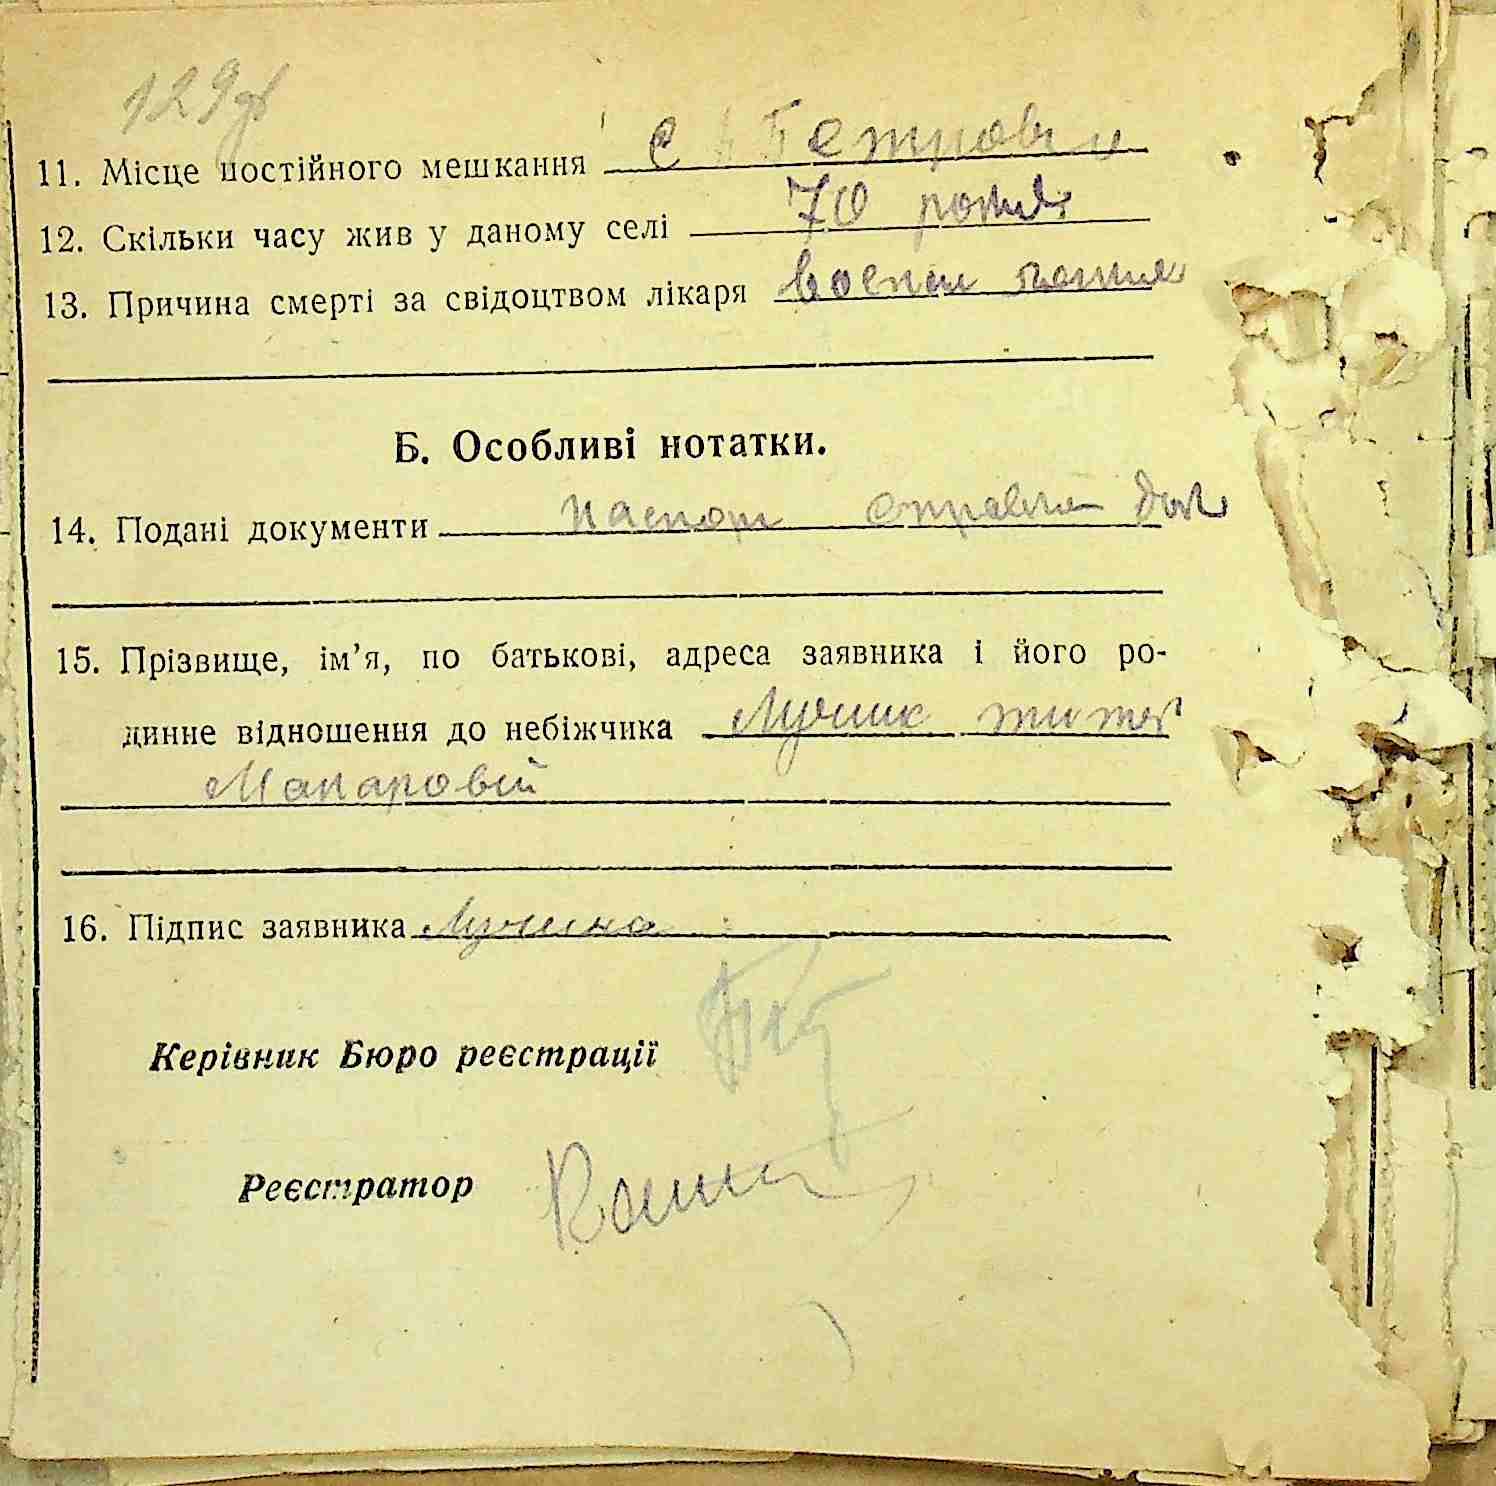 129
11. Місце постійного мешкання с Петровка
12. Скільки часу жив у даному селі 70 років
13. Причина смерті за свідоцтвом лікаря
Б. Особливі нотатки.
14. Подані документи паспорт
15. Прізвище, ім’я, по батькові, адреса заявника і його ро-
динне відношення до небіжчика Лучик
Макаровій
16. Підпис заявника
Керівник Бюро реєстрації
Реєстратор